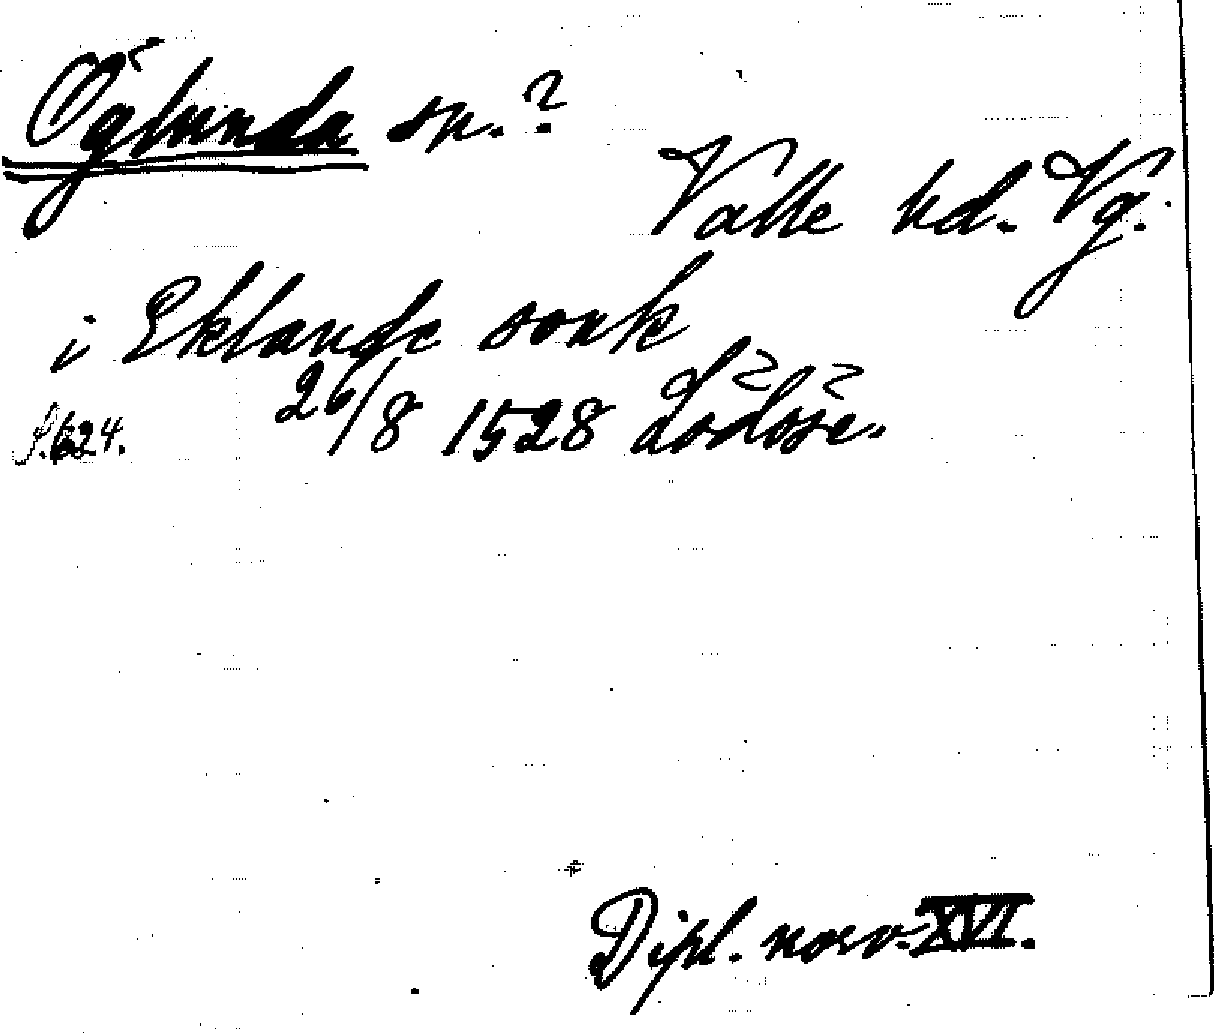 Öglunda sn.?
Valle hd. Vg.
i Eklande sonk
S. 624. 26/8 1528 Lödöse.
Dipl. norv. XVI.